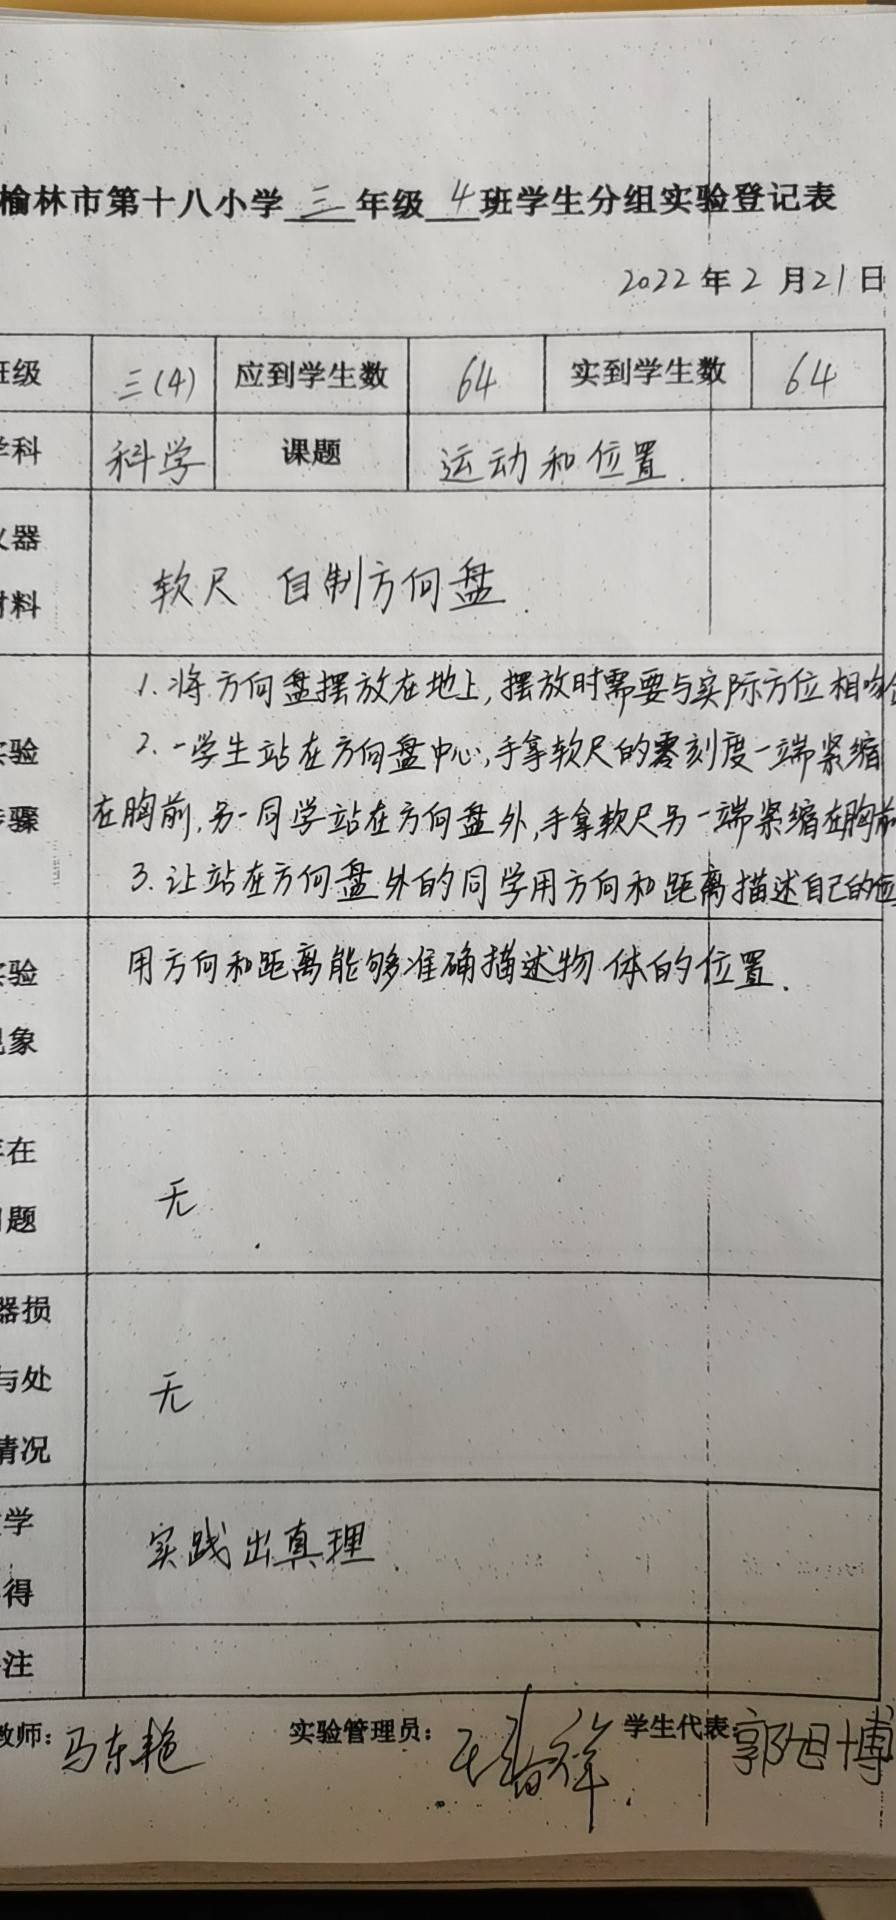 榆林市第十八小学三年级4班学生分组实验登记表
2022年2月21日
级 三(4) 应到学生数 64 实到学生数 64
科 科学 课题 运动和位置.
器
料
软尺 自制方向盘.
1.将方向盘摆放在地上,摆放时需要与实际方位相吻
验 2.一学生站在方向盘中心,手拿软尺的零刻度一端紧缩
骤 在胸前,另一同学站在方向盘外,手拿软尺另一端紧缩在胸前
3.让站在方向盘外的同学用方向和距离描述自己的
验 用方向和距离能够准确描述物体的位置.
象
在
题
无
器损
与处
情况
无
学
得
实践出真理.
注
教师:马东艳 实验管理员: 学生代表:郭旭博